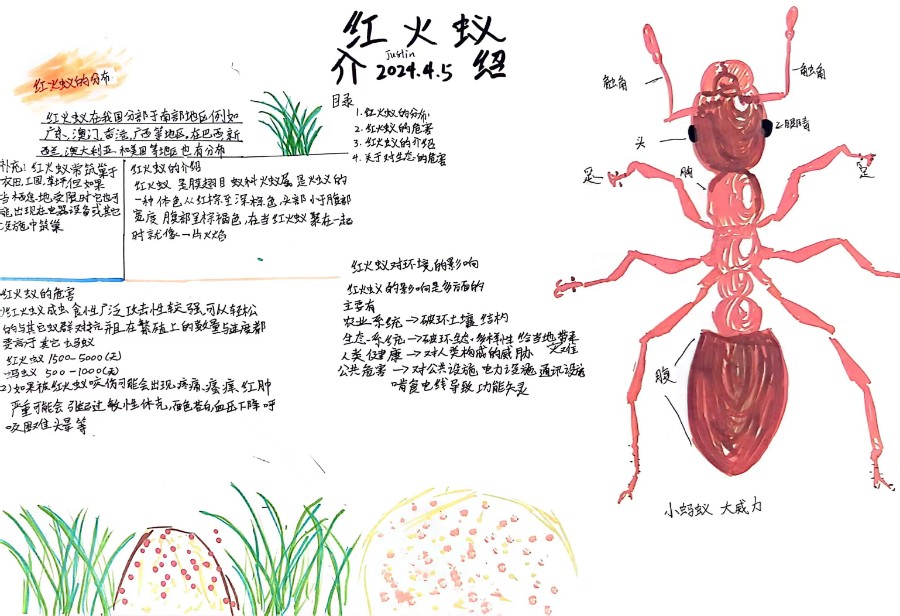 红火蚁
介绍
Justin
2024.4.5
红火蚁的分布
红火蚁在我国分部于南部地区例如
广东,澳门,香港,广西等地区,在巴西,新
西兰,澳大利亚和美国等地区也有分布
目录
1.红火蚁的分布
2.红火蚁的危害
3.红火蚁的介绍
4.关于对生态的危害
补充:红火蚁常筑巢于
农田,工园,草坪,但如果
当栖息地受限时它也可
能出现在电器设备或其它
设施中筑巢
红火蚁的介绍
红火蚁是膜翅目蚁科火蚁属是火蚁的
一种体色从红棕至深棕色,头部小于腹部
宽度腹部呈棕褐色,在当红火蚁聚在一起
时就像一片火焰
红火蚁的危害
1)红火蚁成虫食性广泛攻击性较强,可以轻松
的与其它蚁群对抗并且在繁殖上的数量与速度都
要高于其它蚂蚁
红火蚁1500-5000(天)
蚂蚁 500-1000(天)
2)如果被红火蚁咬伤可能会出现,疼痛,瘙痒,红肿
严重可能会引起过敏性休克,面色苍白,血压下降呼
吸困难头晕等
红火蚁对环境的影响
红火蚁的影响是多方面的
主要有
农业系统→破坏土壤结构
生态系统→破坏生态多样性给当地带来
灾难
人类健康→对人类构成的威胁
公共危害→对公共设施,电力设施,通讯设施
啃食电线导致功能失灵
触角
触角
头
眼睛
足
足
胸
腹
小蚂蚁 大威力